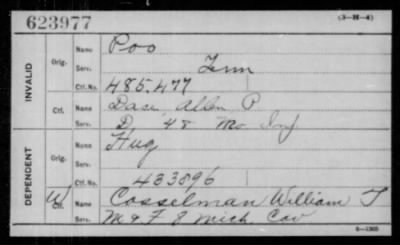 623977
(3-H-4)
INVALID
Orig.
Name Poo
Serv. Tenn
Ctf. No. 485.477
Ctf.
Name Dase Allen P
Serv. D '48 Mo Inf
DEPENDENT
Orig.
Name Hug
Serv.
Ctf. No. 433896
W Ctf.
Name Cosselman William T
Serv. M & F 8 Mich. Cav